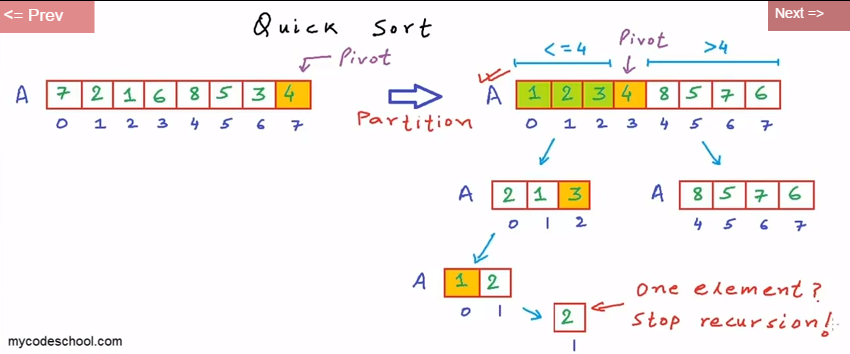 <= Prev
Next =>
Quick Sort
Pivot
A 7 2 1 6 8 5 3 4
0 1 2 3 4 5 6 7
Partition
<=4 Pivot >4
A 1 2 3 4 8 5 7 6
0 1 2 3 4 5 6 7
A 2 1 3
0 1 2
A 8 5 7 6
4 5 6 7
A 1 2
0 1
2
1
One element?
Stop recursion!
mycodeschool.com